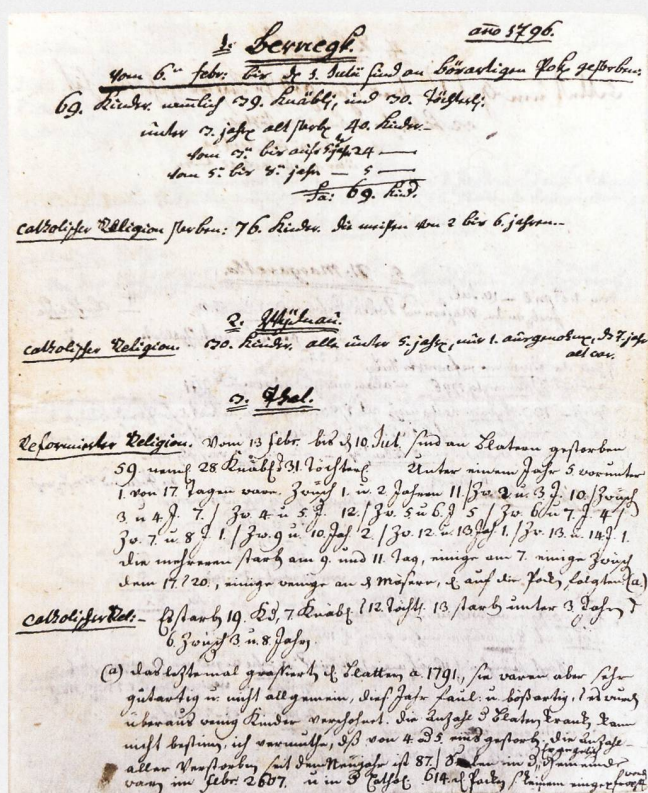 1. Bernegk.
año 1796.
Vom 6.ⁿ febr. bis d. 1. Julii sind an bösartigen Pok gestorben:
69. Kinder. nemlich 39. Knäbli, und 30. Töchterli.
unter 3. jahr alt starb 40. Kinder.
Vom 3.ⁿ bis aufs 5 jahr 24 —
Vom 5. bis 8. jahr — 5 —
Sa: 69. Kind.
Catholischer Religion starben: 76. Kinder. die meisten von 2 bis 6. jahren.
2. Widnau.
Catholischer Religion. 30. Kinder. alle unter 5. jahr, nur 1. ausgenohmen, 7. jahr
alt war.
3. Thal.
Reformierter Religion. Vom 13 febr. bis d 10. Jul. sind an Blatern gestorben
59. neml 28 Knäbl 31. Töchterl Unter einem Jahr 5 worunter
1. von 17. Tagen ware. Zwüsch 1. u. 2 Jahren 11 / Zw. 2 u. 3 J. 10. / Zwüsch
3 u 4 J. 7. / Zw. 4 u 5 J. 12. / Zw. 5 u 6 J 5 / Zw. 6 u 7. J. 4 /
Zw. 7. u 8 J 1. / Zw. 9 u. 10. Jah 2 / Zw. 12. u 13 Jah 1. / Zw. 13. u. 14 J. 1.
die mehreren starb am 9. und 11. Tag, einige am 7. einige Zwüsch
dem 17. 20., einige wenige an auf die Pocken folgten (a)
Catholischer Rel: — Es starb 19. Kd, 7. Knäbl 12. Töchtl. 13. starb unter 3 Jahr
6. Zwüsch 3 u. 8 Jahr.
(a) das letztemal grassiert d Blatten a. 1791., sie waren aber sehr
gutartig u. nicht allgemein, dies Jahr faul: u. bößartig, es wurd
überaus wenig Kinder verschohnet. die Anzahl d Blatern krank kan
nicht bestimm, ich vermuthe, dß von 4 od 5. eins gestorb, die Anzahl
aller Verstorben seit dem Neujahr ist 87. / Seelen in d Gemeinde
warn im febr. 2607. u in d Cathol. 614.